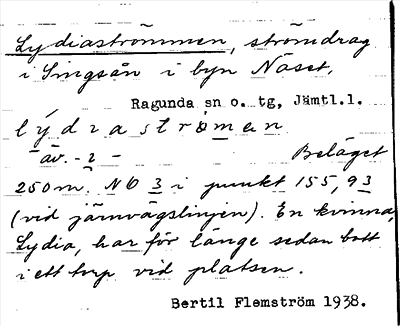 Lydiaströmmen, strömdrag
i Singsån i byn Näset,
Ragunda sn o. tg, Jämtl.l.
lýdiaströmen
äv. -ı- Beläget
250m. NO 3 i punkt 155,93
(vid järnvägslinjen). En kvinna,
Lydia, har för länge sedan bott
i ett torp vid platsen.
Bertil Flemström 1938.